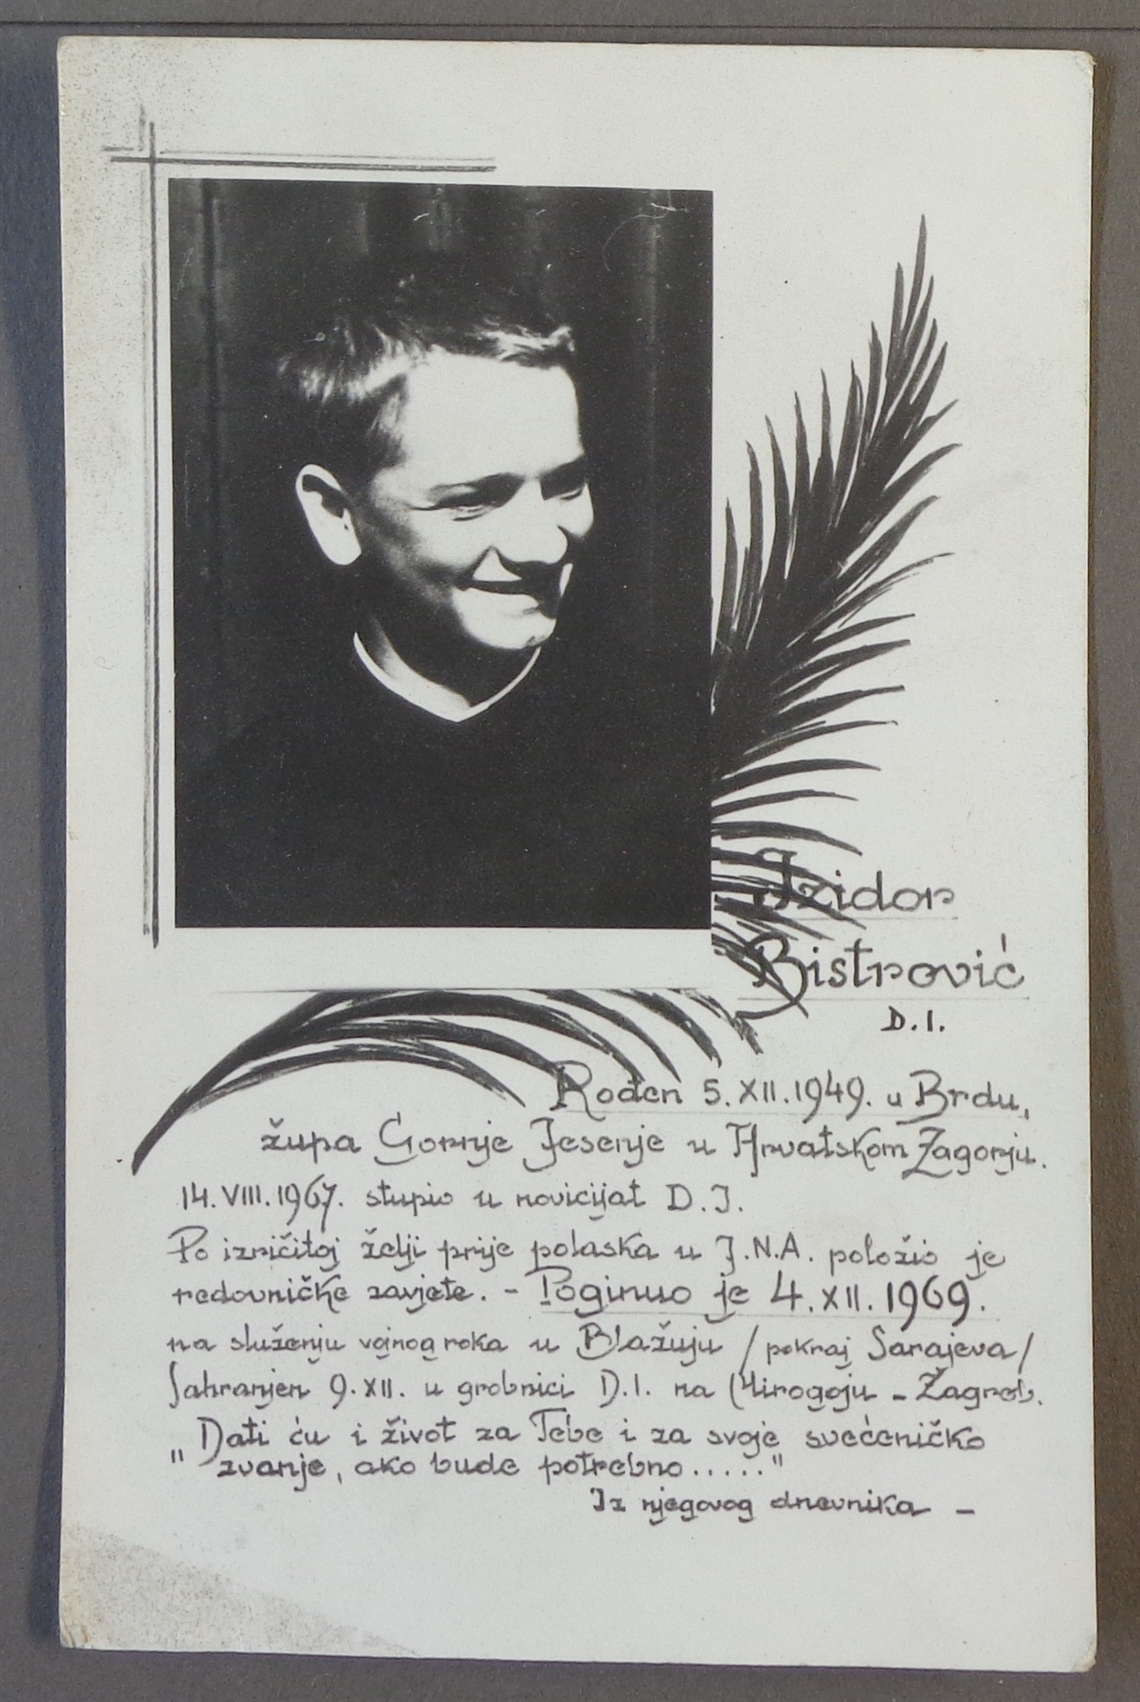 Izidor
Bistrović
D.I.
Rođen 5. XII. 1949. u Brdu,
župa Gornje Jesenje u Hrvatskom Zagorju.
14. VIII. 1967. stupio u novicijat D.I.
Po izričitoj želji prije polaska u J.N.A. položio je
redovničke zavjete. – Poginuo je 4. XII. 1969.
na služenju vojnog roka u Blažuju /pokraj Sarajeva/
Sahranjen 9. XII. u grobnici D.I. na Mirogoju – Zagreb.
„Dati ću i život za Tebe i za svoje svećeničko
zvanje, ako bude potrebno....."
Iz njegovog dnevnika –